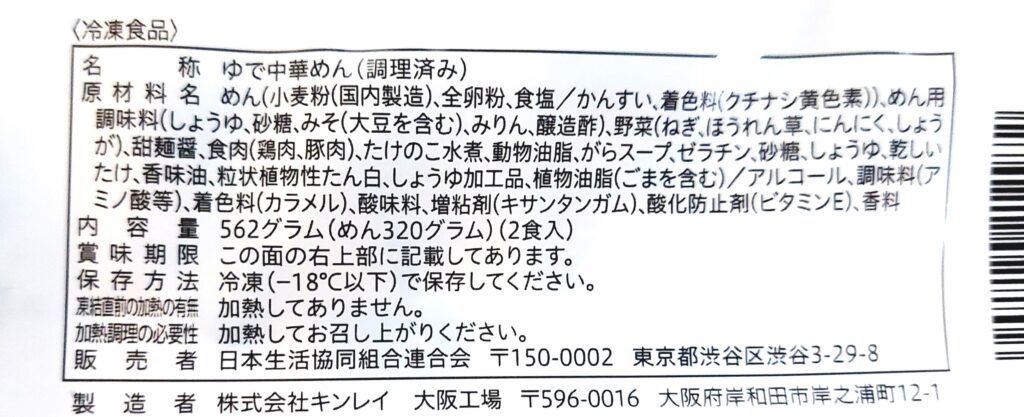 〈冷凍食品〉
名称 ゆで中華めん(調理済み)
原材料名 めん(小麦粉(国内製造)、全卵粉、食塩/かんすい、着色料(クチナシ黄色素))、めん用
調味料(しょうゆ、砂糖、みそ(大豆を含む)、みりん、醸造酢)、野菜(ねぎ、ほうれん草、にんにく、しょう
が)、甜麺醤、食肉(鶏肉、豚肉)、たけのこ水煮、動物油脂、がらスープ、ゼラチン、砂糖、しょうゆ、乾しい
たけ、香味油、粒状植物性たん白、しょうゆ加工品、植物油脂(ごまを含む)/アルコール、調味料(ア
ミノ酸等)、着色料(カラメル)、酸味料、増粘剤(キサンタンガム)、酸化防止剤(ビタミンE)、香料
内容量 562グラム(めん320グラム)(2食入)
賞味期限 この面の右上部に記載してあります。
保存方法 冷凍(−18℃以下)で保存してください。
凍結直前の加熱の有無 加熱してありません。
加熱調理の必要性 加熱してお召し上がりください。
販売者 日本生活協同組合連合会 〒150-0002 東京都渋谷区渋谷3-29-8
製造者 株式会社キンレイ 大阪工場 〒596-0016 大阪府岸和田市岸之浦町12-1